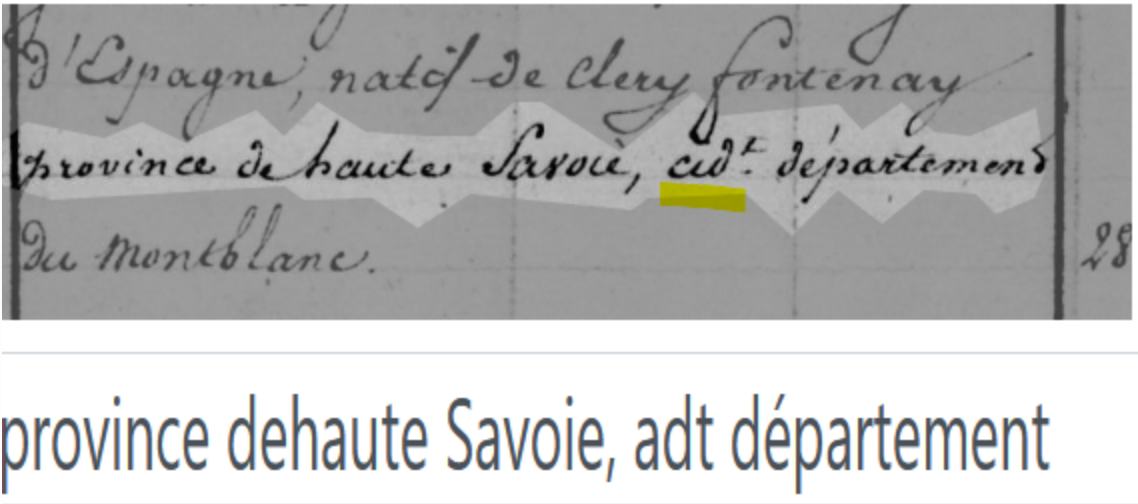 d'Espagne, natif de Clery fontenay
province de haute Savoie, aud.t département
du Montblanc.
28
province dehaute Savoie, adt département